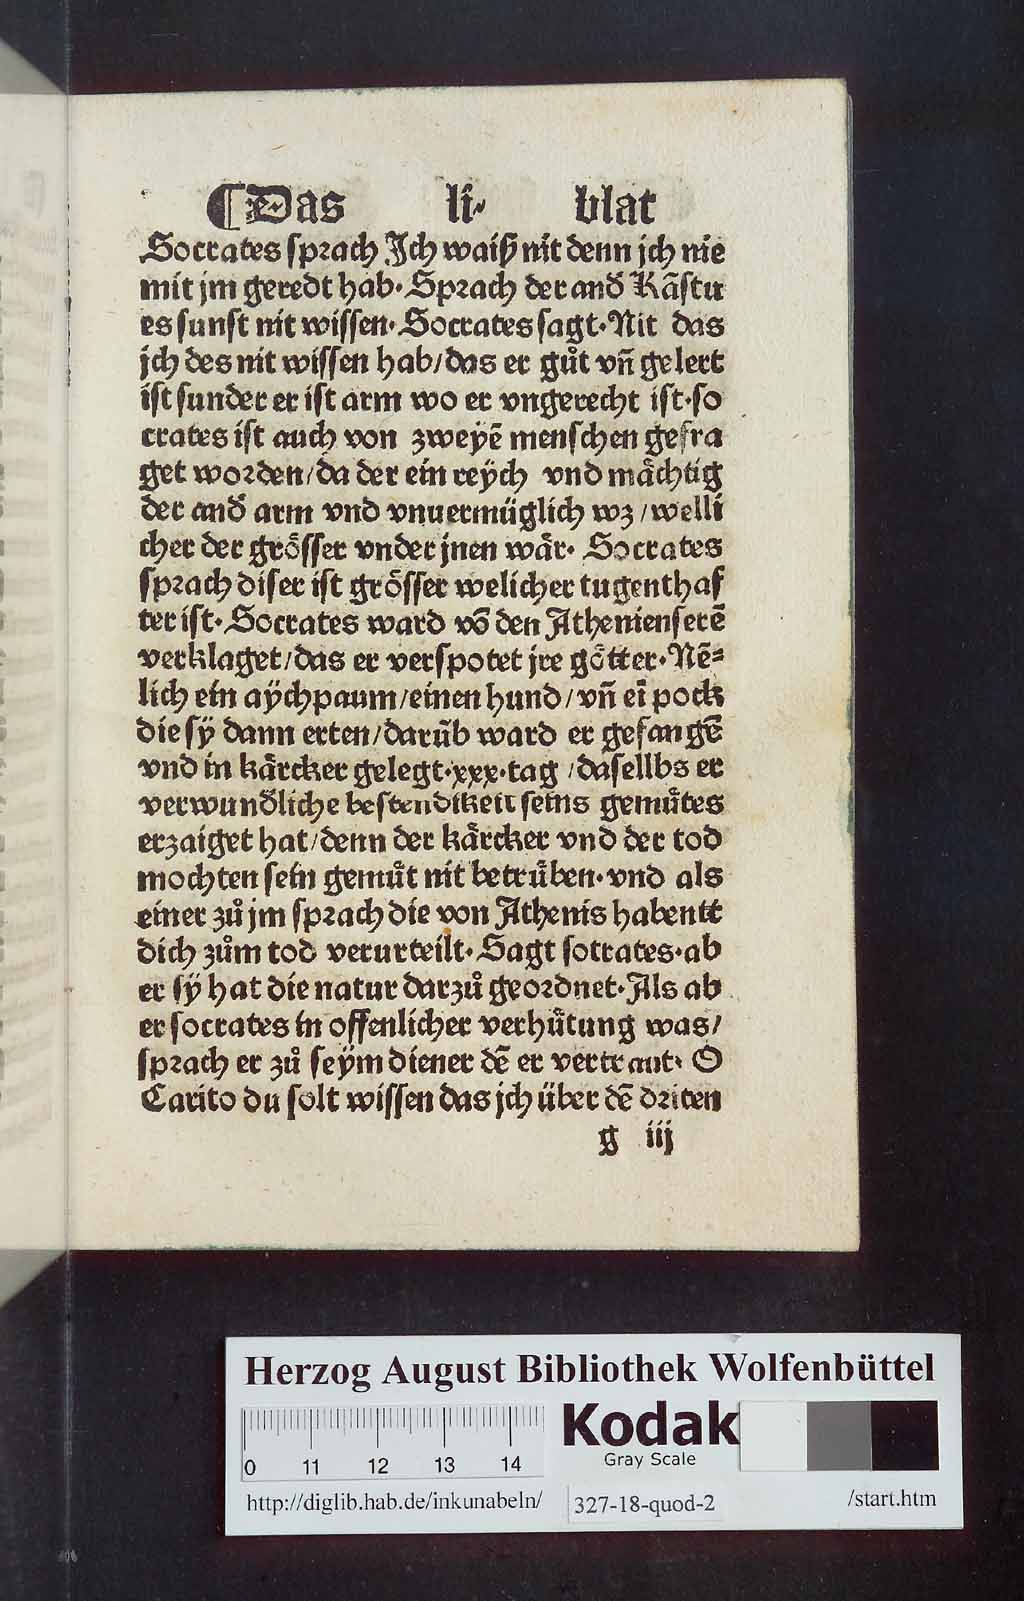 ¶Das li· blat
Socrates sprach Jch waiß nit denn jch nie
mit jm geredt hab· Sprach der and̄ Kāstu
es sunst nit wissen· Socrates sagt· Nit das
jch des nit wissen hab/das er gůt vn̄ gelert
ist sunder er ist arm wo er vngerecht ist·so
crates ist auch von zweyē menschen gefra
get worden/da der ein reÿch vnd mächtig
der and̄ arm vnd vnuermüglich wz/welli
cher der grösser vnder jnen wär· Socrates
sprach diser ist grösser welicher tugenthaf
ter ist· Socrates ward vō den Athenienserē
verklaget/das er verspotet jre götter·Nē⸗
lich ein aÿchpaum/einen hund/vn̄ eī pock
die sÿ dann erten/darūb ward er gefangē
vnd in kärcker gelegt·xxx·tag/dasellbs er
verwund̄liche bestendikeit seins gemütes
erzaiget hat/denn der kärcker vnd der tod
mochten sein gemüt nit betrüben·vnd als
einer zů jm sprach die von Athenis habentt
dich zům tod verurteilt· Sagt sotrates·ab
er sÿ hat die natur darzů geordnet·Als ab
er socrates in offenlicher verhütung was/
sprach er zů seÿm diener dē er vertraut· O
Carito du solt wissen das jch über dē driten
g iij
Herzog August Bibliothek Wolfenbüttel
Kodak
Gray Scale
0 11 12 13 14
http://diglib.hab.de/inkunabeln/ 327-18-quod-2 /start.htm